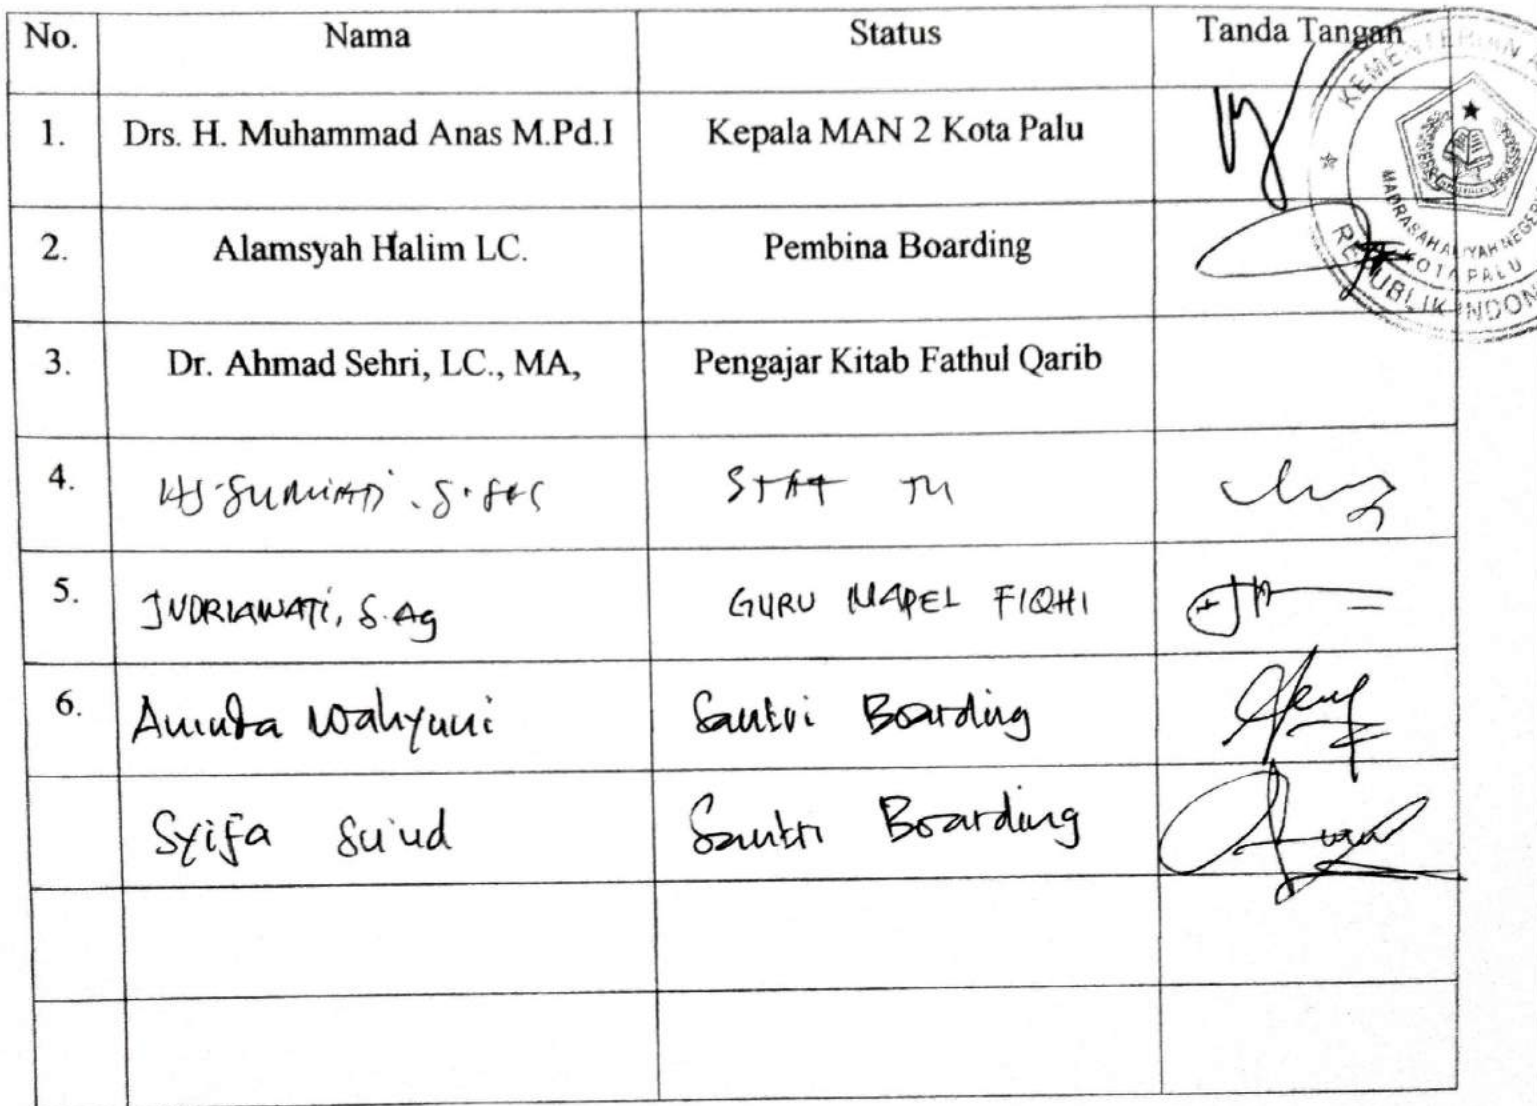 No. Nama Status Tanda Tangan
1. Drs. H. Muhammad Anas M.Pd.I Kepala MAN 2 Kota Palu
2. Alamsyah Halim LC. Pembina Boarding
3. Dr. Ahmad Sehri, LC., MA, Pengajar Kitab Fathul Qarib
4. HJ. SUMIATI. S.
5. JUDRIAWATI, S.Ag GURU MAPEL FIQHI
6. Aninda Wahyuni Santri Boarding
Syifa Su'ud Santri Boarding
KEMENTERIAN A
MADRASAH ALIYAH NEGERI
KOTA PALU
REPUBLIK INDON